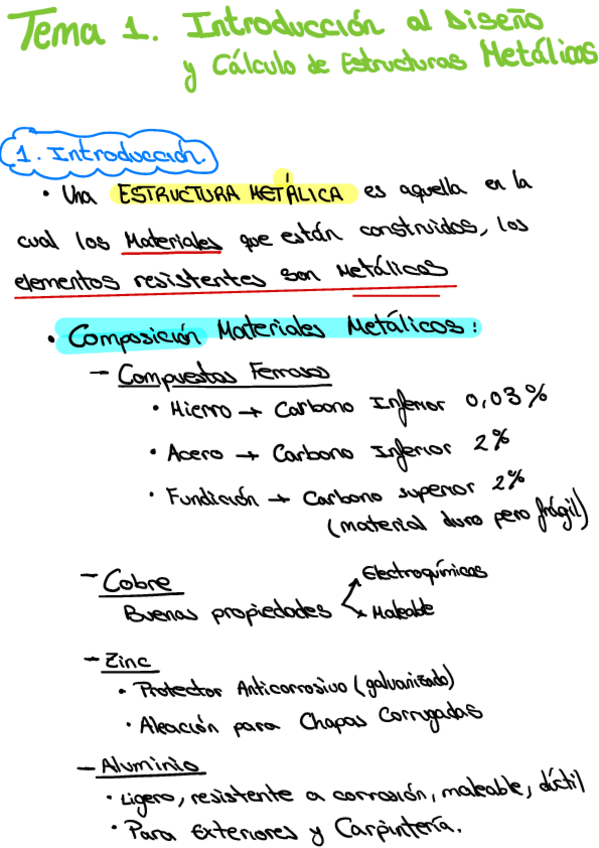 Tema 1. Introducción al Diseño
y Cálculo de Estructuras Metálicas
1. Introducción.
• Una ESTRUCTURA METÁLICA es aquella en la
cual los Materiales que están construidos, los
elementos resistentes son Metálicos
• Composición Materiales Metálicos:
- Compuestos Ferrosos
• Hierro → Carbono Inferior 0,03%
• Acero → Carbono Inferior 2%
• Fundición → Carbono superior 2%
(material duro pero frágil)
- Cobre
Buenas propiedades
Electroquímicas
Maleable
- Zinc
• Protector Anticorrosivo (galvanizado)
• Aleación para Chapas Corrugadas
- Aluminio
• Ligero, resistente a corrosión, maleable, dúctil
• Para Exteriores y Carpintería.